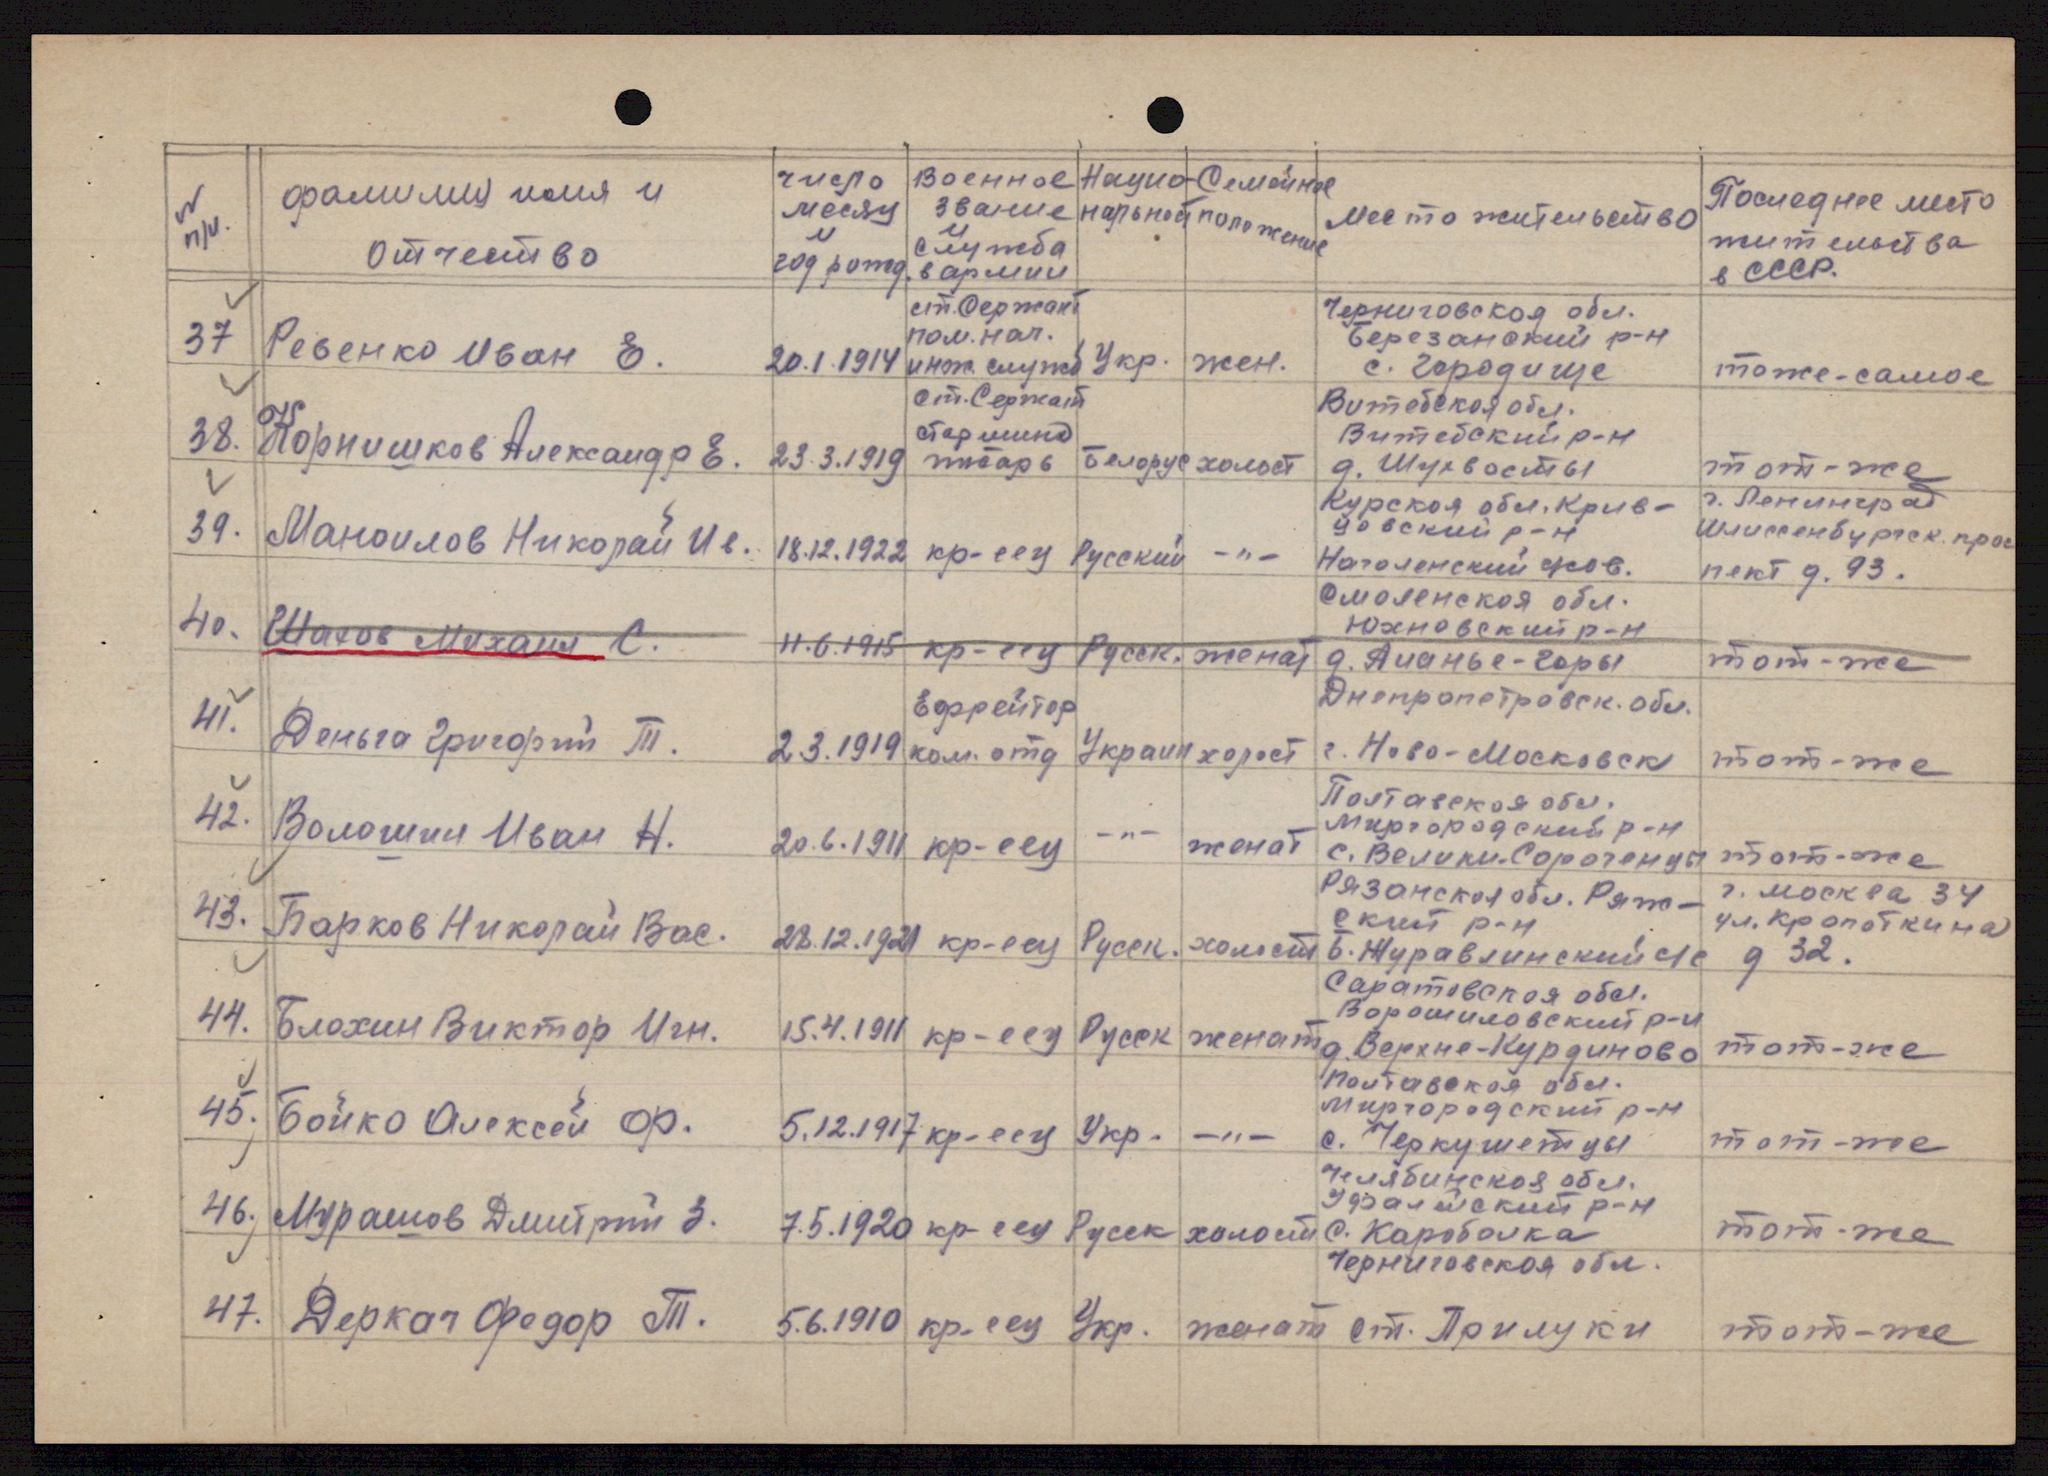 № п/п.
фамилия имя и
отчество
число
месяц
и
год рожд.
Военное
звание
и
служба
в армии
Нацио-
нальной
Семейное
положение
Место жительство
Последнее место
жительства
в СССР.
37 Ревенко Иван Е. 20.1.1914
ст. Сержант
пом. нач.
инж. служб
Укр. жен.
Черниговская обл.
Березанский р-н
с. Городище
тоже-самое
38. Корнишков Александр Е. 23.3.1919
ст. Сержант
старшина
Белорус холост
Витебская обл.
Витебский р-н
тот-же
39. Маноилов Николай Ив. 18.12.1922 кр-еец Русский -"-
Курская обл. Крив-
цовский р-н
г. Ленинград
Шлиссенбургск. прос
пект д. 93.
40. Шахов Михаил С. 11.6.1915 кр-еец Русск. женат
Смоленская обл.
Юхновский р-н
тот-же
41. Деньга Григорий Т. 2.3.1919
Ефрейтор
ком. отд
Украин холост
Днепропетровск. обл.
г. Ново-Московск
тот-же
42. Волошин Иван Н. 20.6.1911 кр-еец -"- женат
Полтавская обл.
Миргородский р-н
с. Велики-Сороченцы
тот-же
43. Барков Николай Вас. 28.12.1921 кр-еец Русск. холост
Рязанская обл. Ряж-
ский р-н
Б. Журавлинский с/с
г. Москва 34
ул. Кропоткина
д 32.
44. Блохин Виктор Игн. 15.4.1911 кр-еец Русск женат
Саратовская обл.
Ворошиловский р-н
д. Верхне-Курдиново
тот-же
45. Бойко Алексей Ф. 5.12.1917 кр-еец Укр. -"-
Полтавская обл.
Миргородский р-н
с. Черкушетцы
тот-же
46. Мурашов Дмитрий З. 7.5.1920 кр-еец Русск холост
Челябинская обл.
Уфалейский р-н
с. Караболка
тот-же
47. Деркач Федор Т. 5.6.1910 кр-еец Укр. женат
Черниговская обл.
ст. Прилуки
тот-же